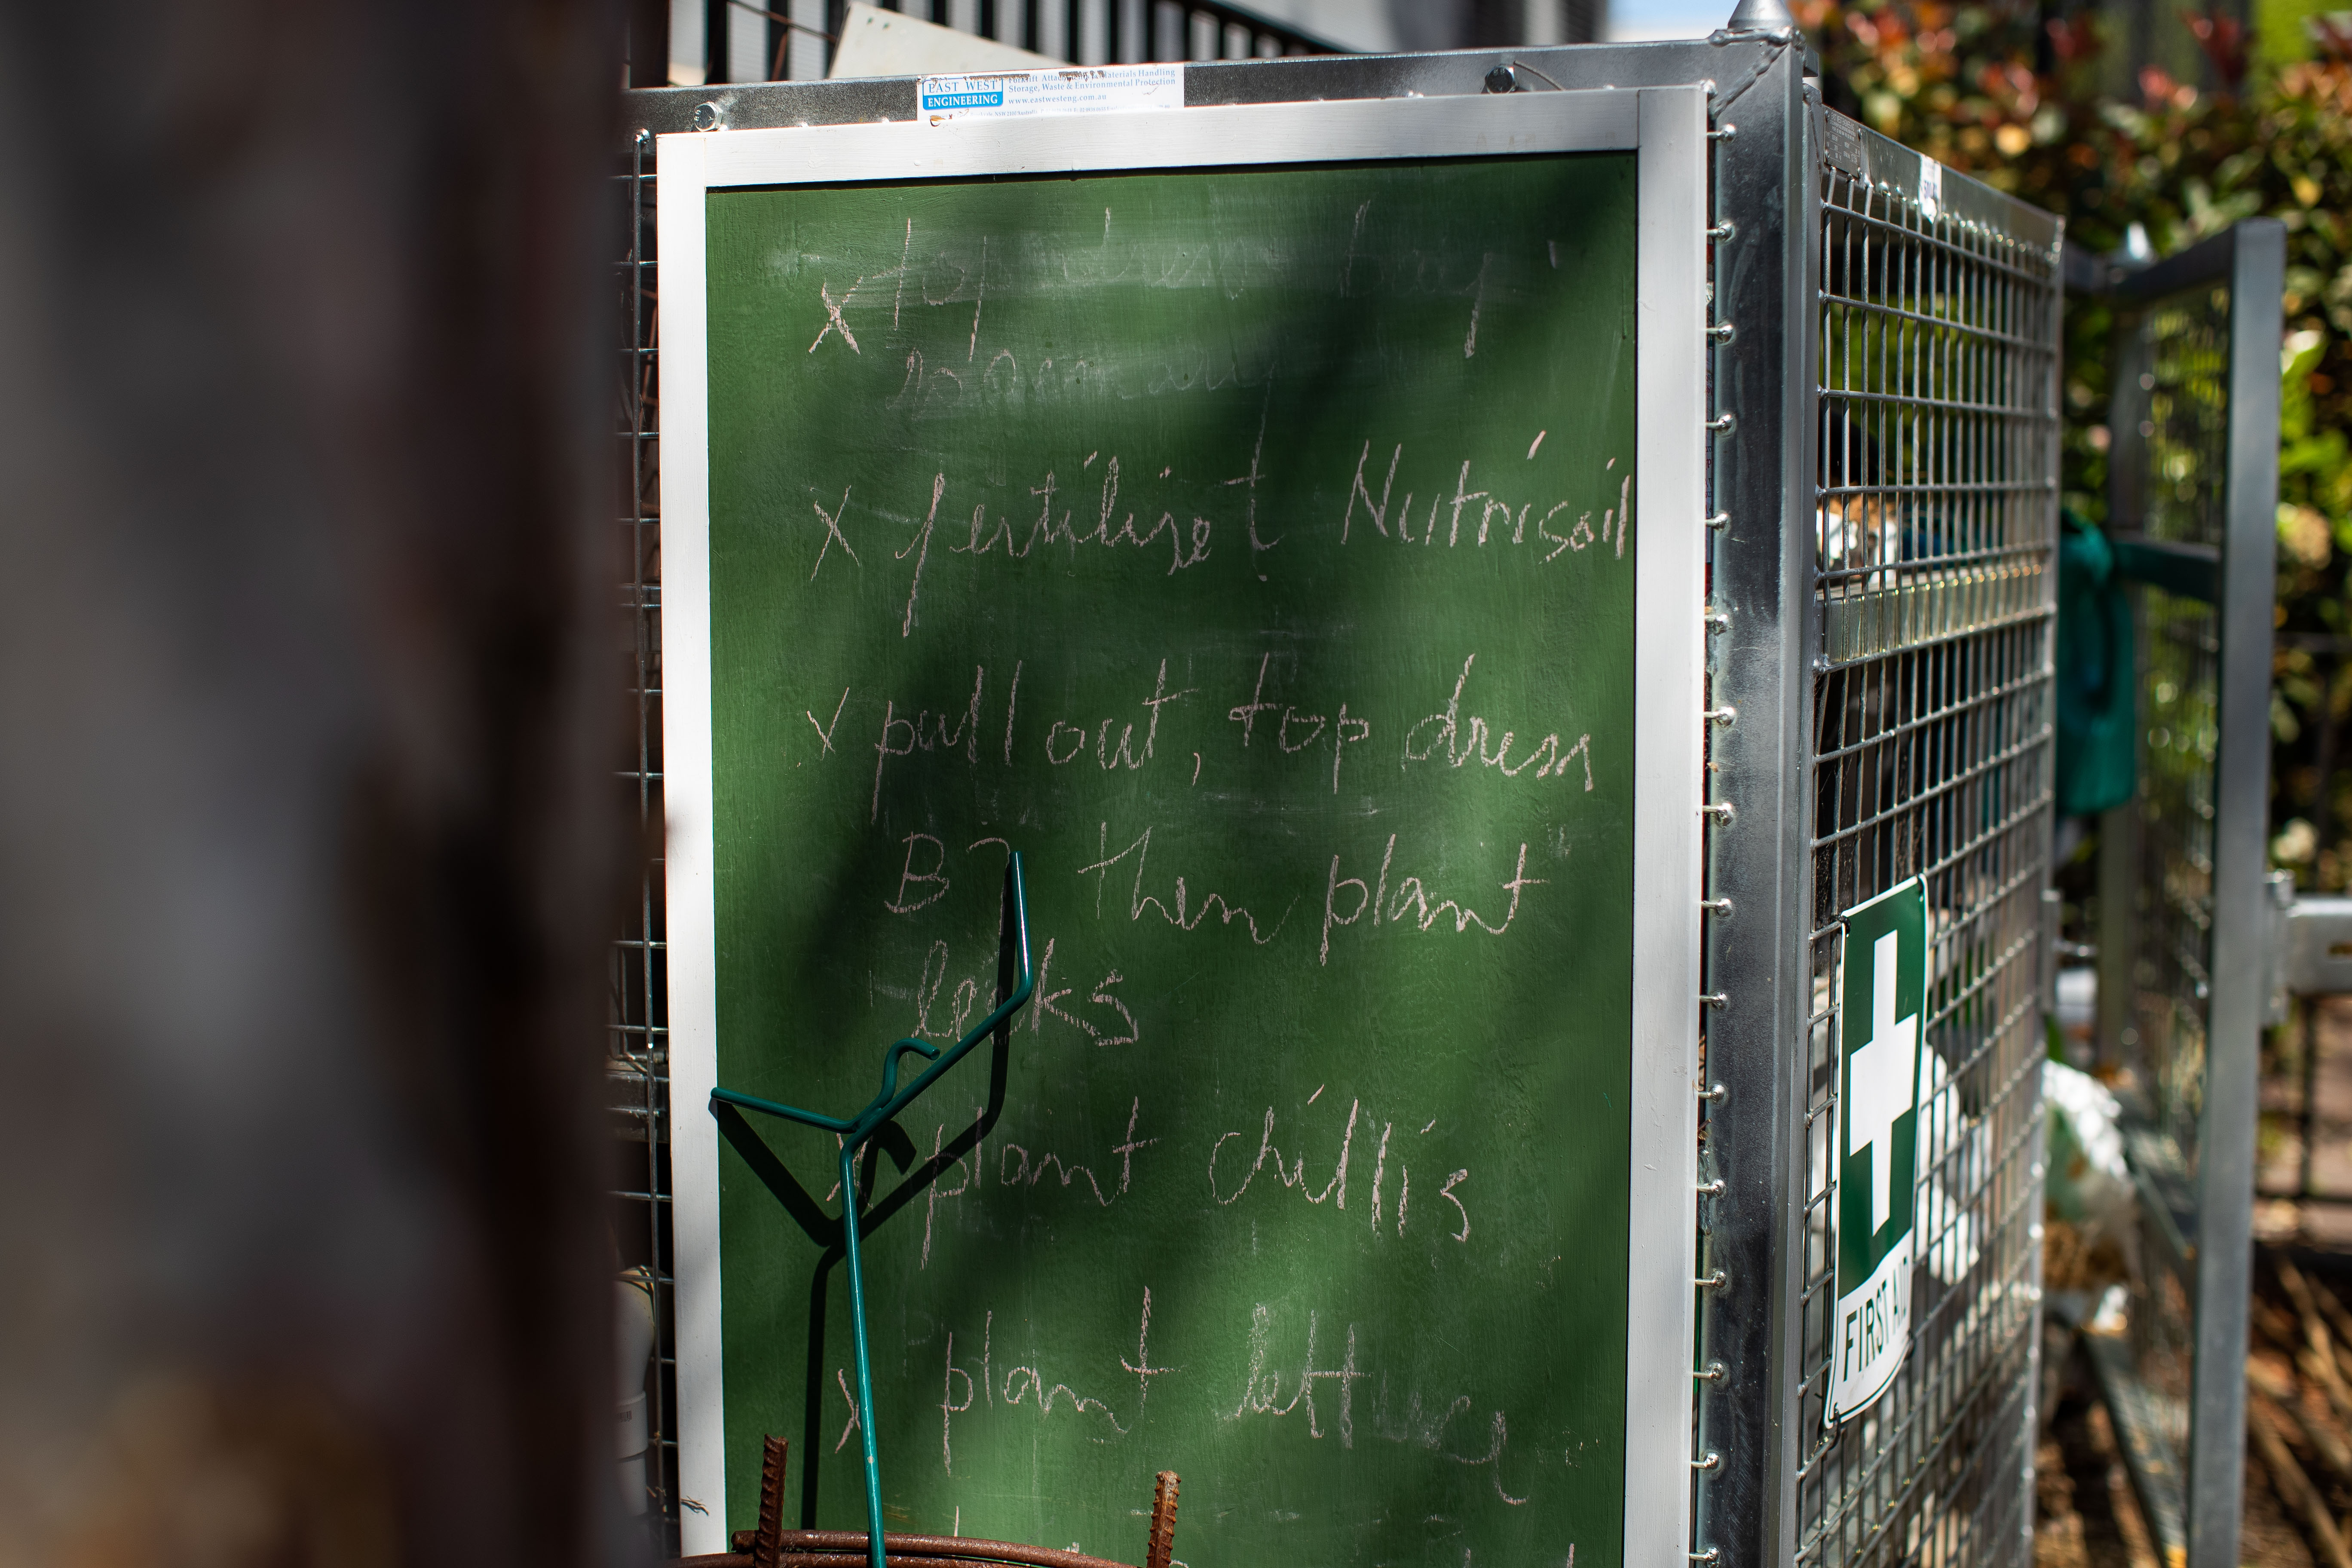 EAST WEST
ENGINEERING
Forklift Attachments Materials Handling
Storage, Waste & Environmental Protection
www.eastwesteng.com.au
x top dress bay
rosemary
x fertilise t Nutrisoil
x pull out, top dress
B7 then plant
leeks
x plant chilli's
x plant lettuce
FIRST AID